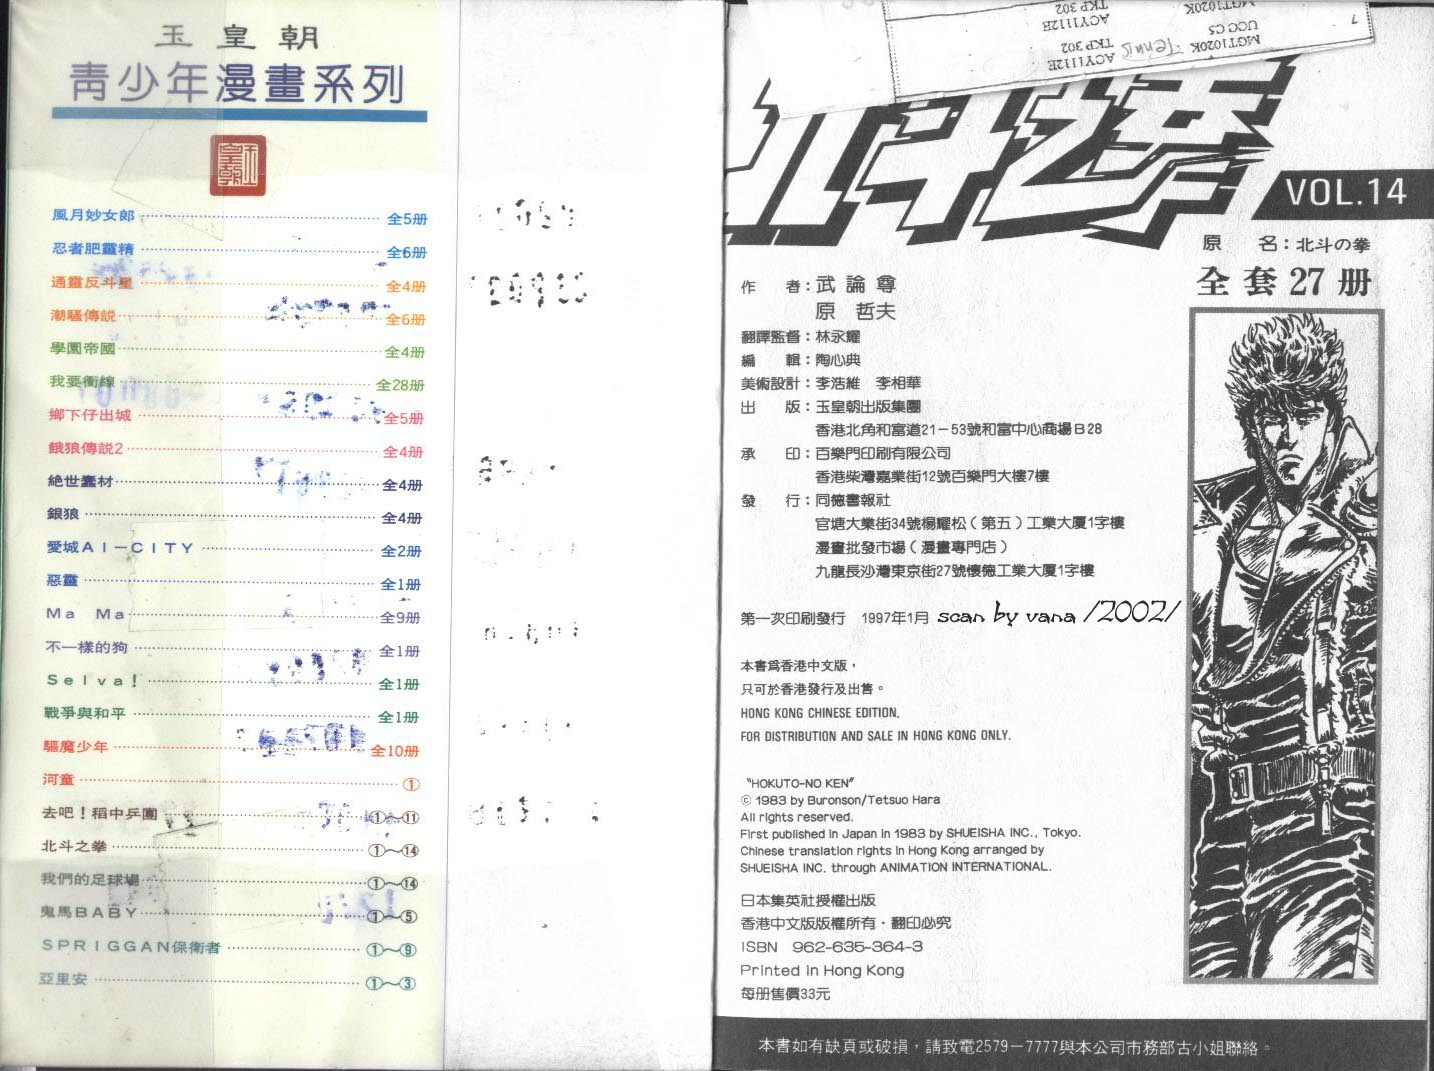 玉皇朝
青少年漫畫系列
玉皇朝
風月妙女郎 全5册
忍者肥靈精 全6册
通靈反斗星 全4册
潮騷傳説 全6册
學園帝國 全4册
我要衝線 全28册
鄉下仔出城 全5册
餓狼傳説2 全4册
絶世蠢材 全4册
銀狼 全4册
愛城AI-CITY 全2册
惡靈 全1册
Ma Ma 全9册
不一樣的狗 全1册
Selva! 全1册
戰爭與和平 全1册
驅魔少年 全10册
河童 ①
去吧！稻中乒團 ①~⑪
北斗之拳 ①~⑭
我們的足球場 ①~⑭
鬼馬BABY ①~⑤
SPRIGGAN保衛者 ①~⑨
亞里安 ①~③
MGT1020K
TKP 302
ACY1112E
UCC C5
MGT1020K
Tennis
TKP 302
ACY1112E
7
北斗之拳
VOL.14
原 名：北斗の拳
全套27册
作 者：武論尊
原 哲夫
翻譯監督：林永耀
編 輯：陶心典
美術設計：李浩維 李相華
出 版：玉皇朝出版集團
香港北角和富道21－53號和富中心商場B28
承 印：百樂門印刷有限公司
香港柴灣嘉業街12號百樂門大樓7樓
發 行：同德書報社
官塘大業街34號楊耀松（第五）工業大廈1字樓
漫畫批發市場（漫畫專門店）
九龍長沙灣東京街27號懷德工業大廈1字樓
第一次印刷發行 1997年1月 scan by vana /2002/
本書爲香港中文版，
只可於香港發行及出售。
HONG KONG CHINESE EDITION,
FOR DISTRIBUTION AND SALE IN HONG KONG ONLY.
"HOKUTO-NO KEN"
© 1983 by Buronson/Tetsuo Hara
All rights reserved.
First published in Japan in 1983 by SHUEISHA INC., Tokyo.
Chinese translation rights in Hong Kong arranged by
SHUEISHA INC. through ANIMATION INTERNATIONAL.
日本集英社授權出版
香港中文版版權所有·翻印必究
ISBN 962-635-364-3
Printed in Hong Kong
每册售價33元
本書如有缺頁或破損，請致電2579－7777與本公司市務部古小姐聯絡。